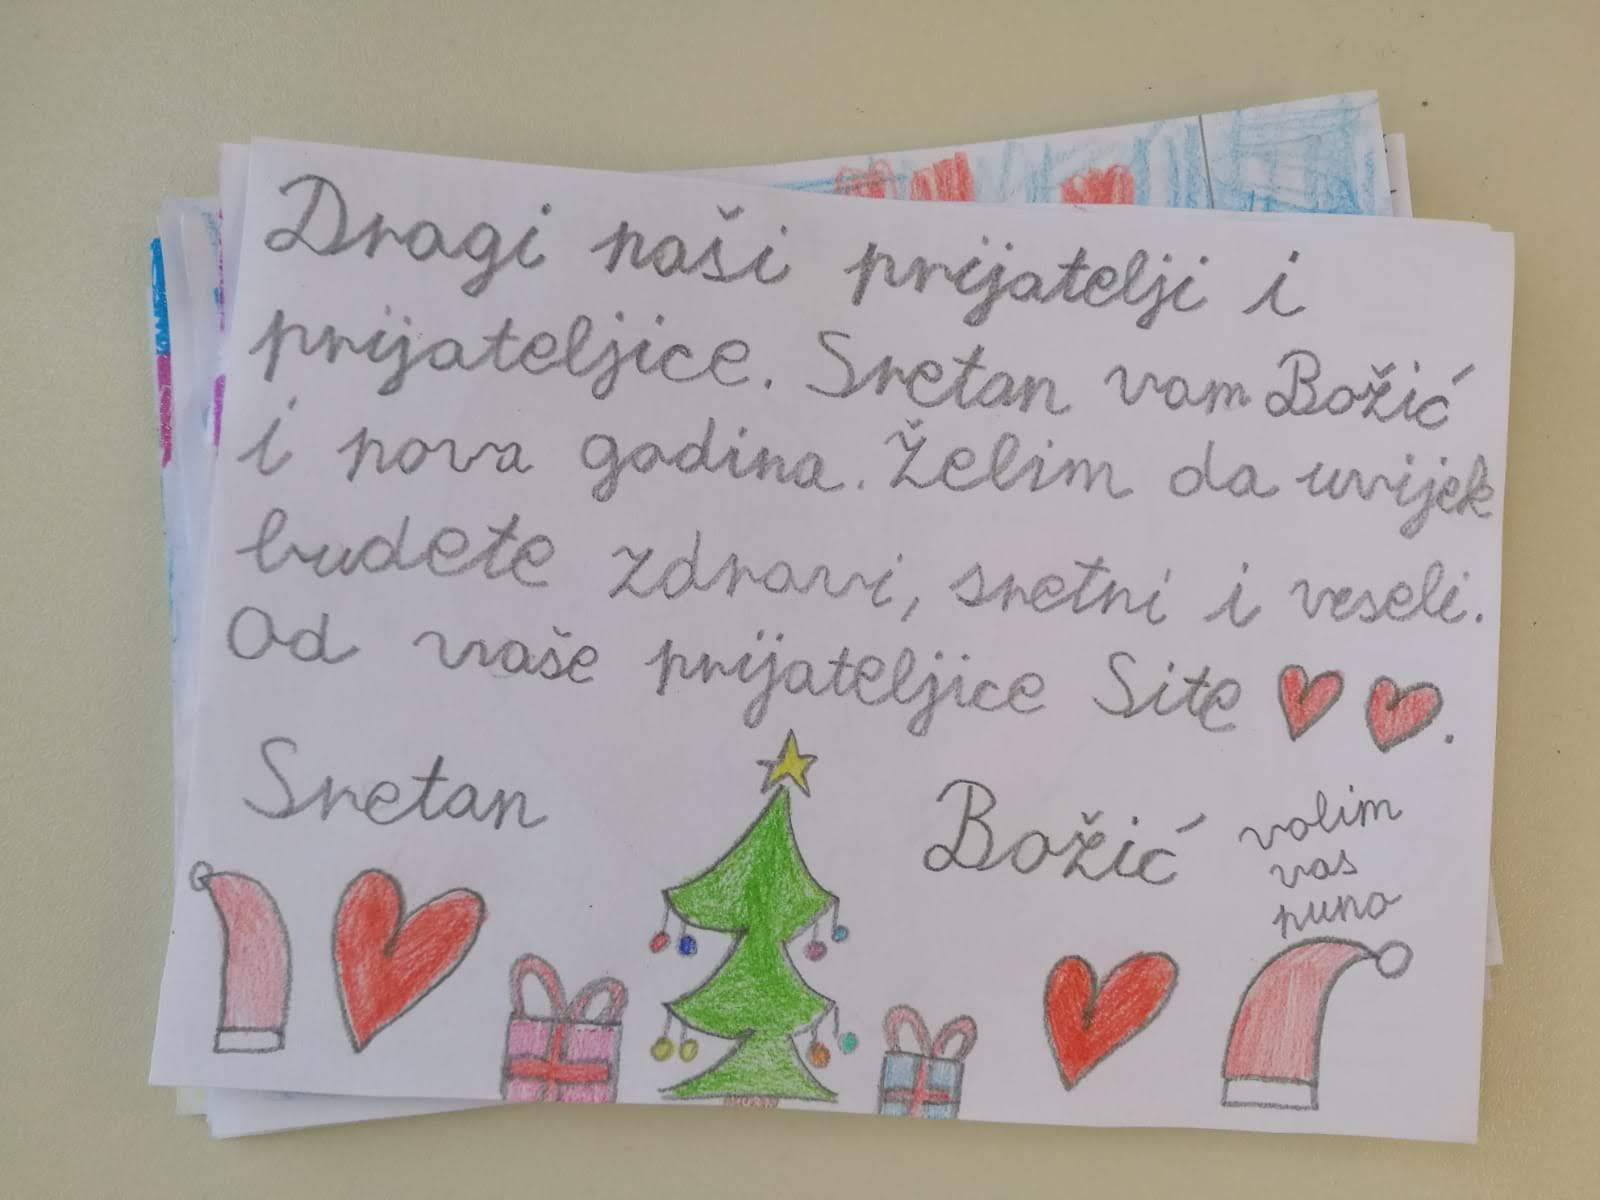 Dragi naši prijatelji i
prijateljice. Sretan vam Božić
i nova godina. Želim da uvijek
budete zdravi, sretni i veseli.
Od vaše prijateljice Site .
Sretan Božić
volim
vas
puno